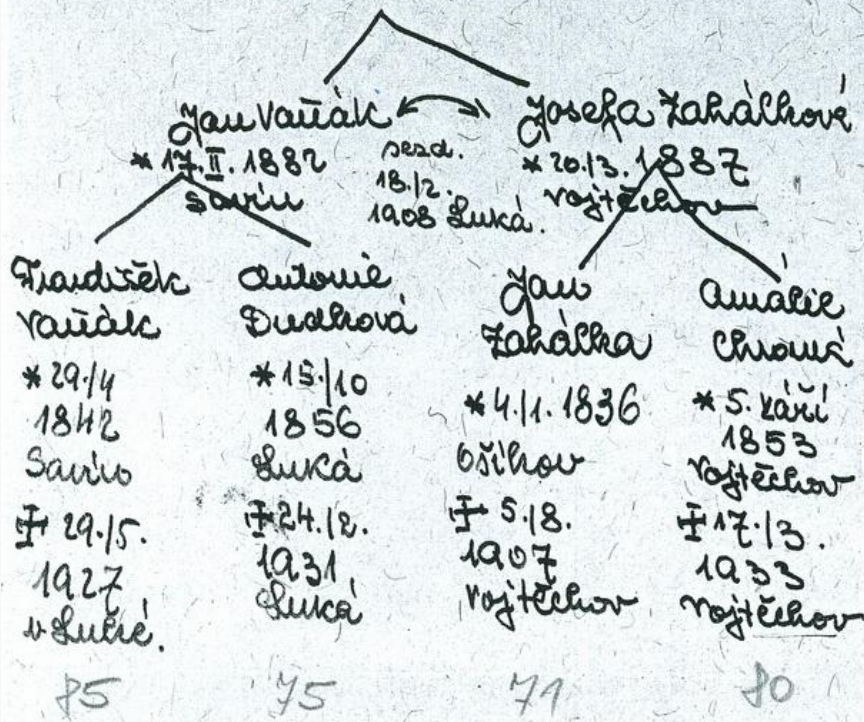 Jan Vaňák
* 17.II.1882
Savín
sezd.
18./2.
1908 Luká.
Josefa Zahálková
* 20./3.1887
Vojtěchov
František
Vaňák
* 29./4
1842
Savín
29./5.
1927
v Luké.
85
Antonie
Dudková
* 15./10
1856
Luká
24./2.
1931
Luká
75
Jan
Zahálka
* 4./1.1836
Ošíkov
5./8.
1907
Vojtěchov
71
Amálie
Chromá
* 5. září
1853
Vojtěchov
17./3.
1933
Vojtěchov
80